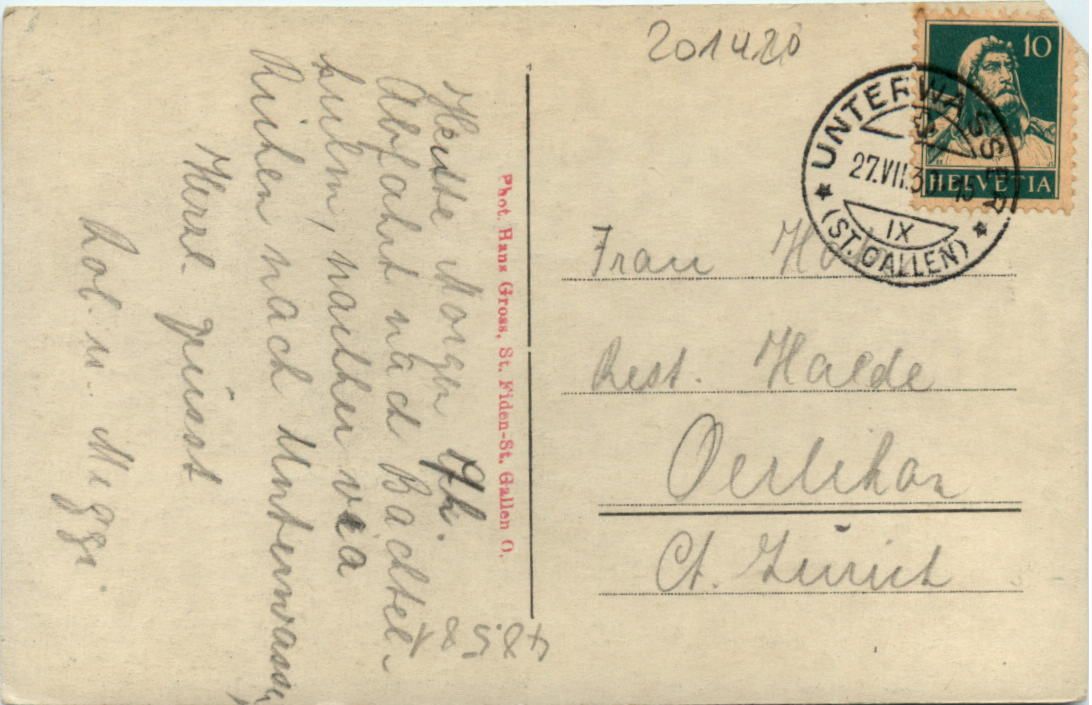 201420
10
HELVETIA
UNTERWASSER
27.VII.3
IX
(ST. GALLEN)
Heute Morgen 9h.
Abfahrt nach Bachtel-
kulm, weither via
Ricken nach Unterwasser,
Herzl. grüsst
Rob. u. Meggi.
Phot. Hans Gross, St. Fiden-St. Gallen O.
Frau
Rest. Halde
Oerlikon
Ct. Zürich